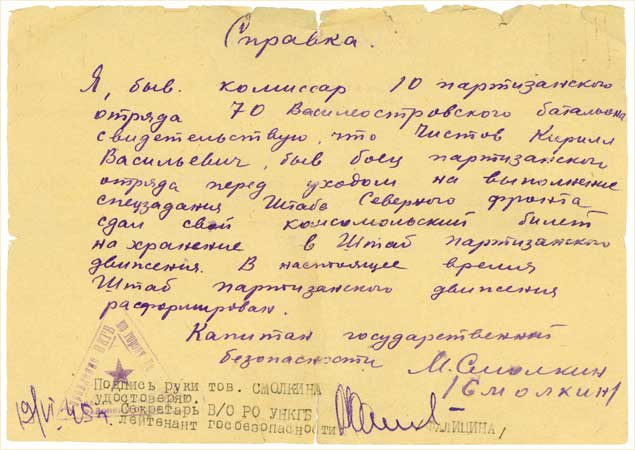 Справка.
Я, быв. комиссар 10 партизанского
отряда 70 Василеостровского батальона
свидетельствую, что Чистов Кирилл
Васильевич, быв боец партизанского
отряда перед уходом на выполнение
спецзадания Штаба Северного фронта
сдал свой комсомольский билет
на хранение в Штаб партизанского
движения. В настоящее время
Штаб партизанского движения
расформирован.
Капитан государственной
безопасности М. Смолкин
/Смолкин/
Подпись руки тов. СМОЛКИНА
удостоверяю.
Секретарь В/О РО УНКГБ
лейтенант госбезопасности ГАЛИЦИНА/
19/VI 45 г.